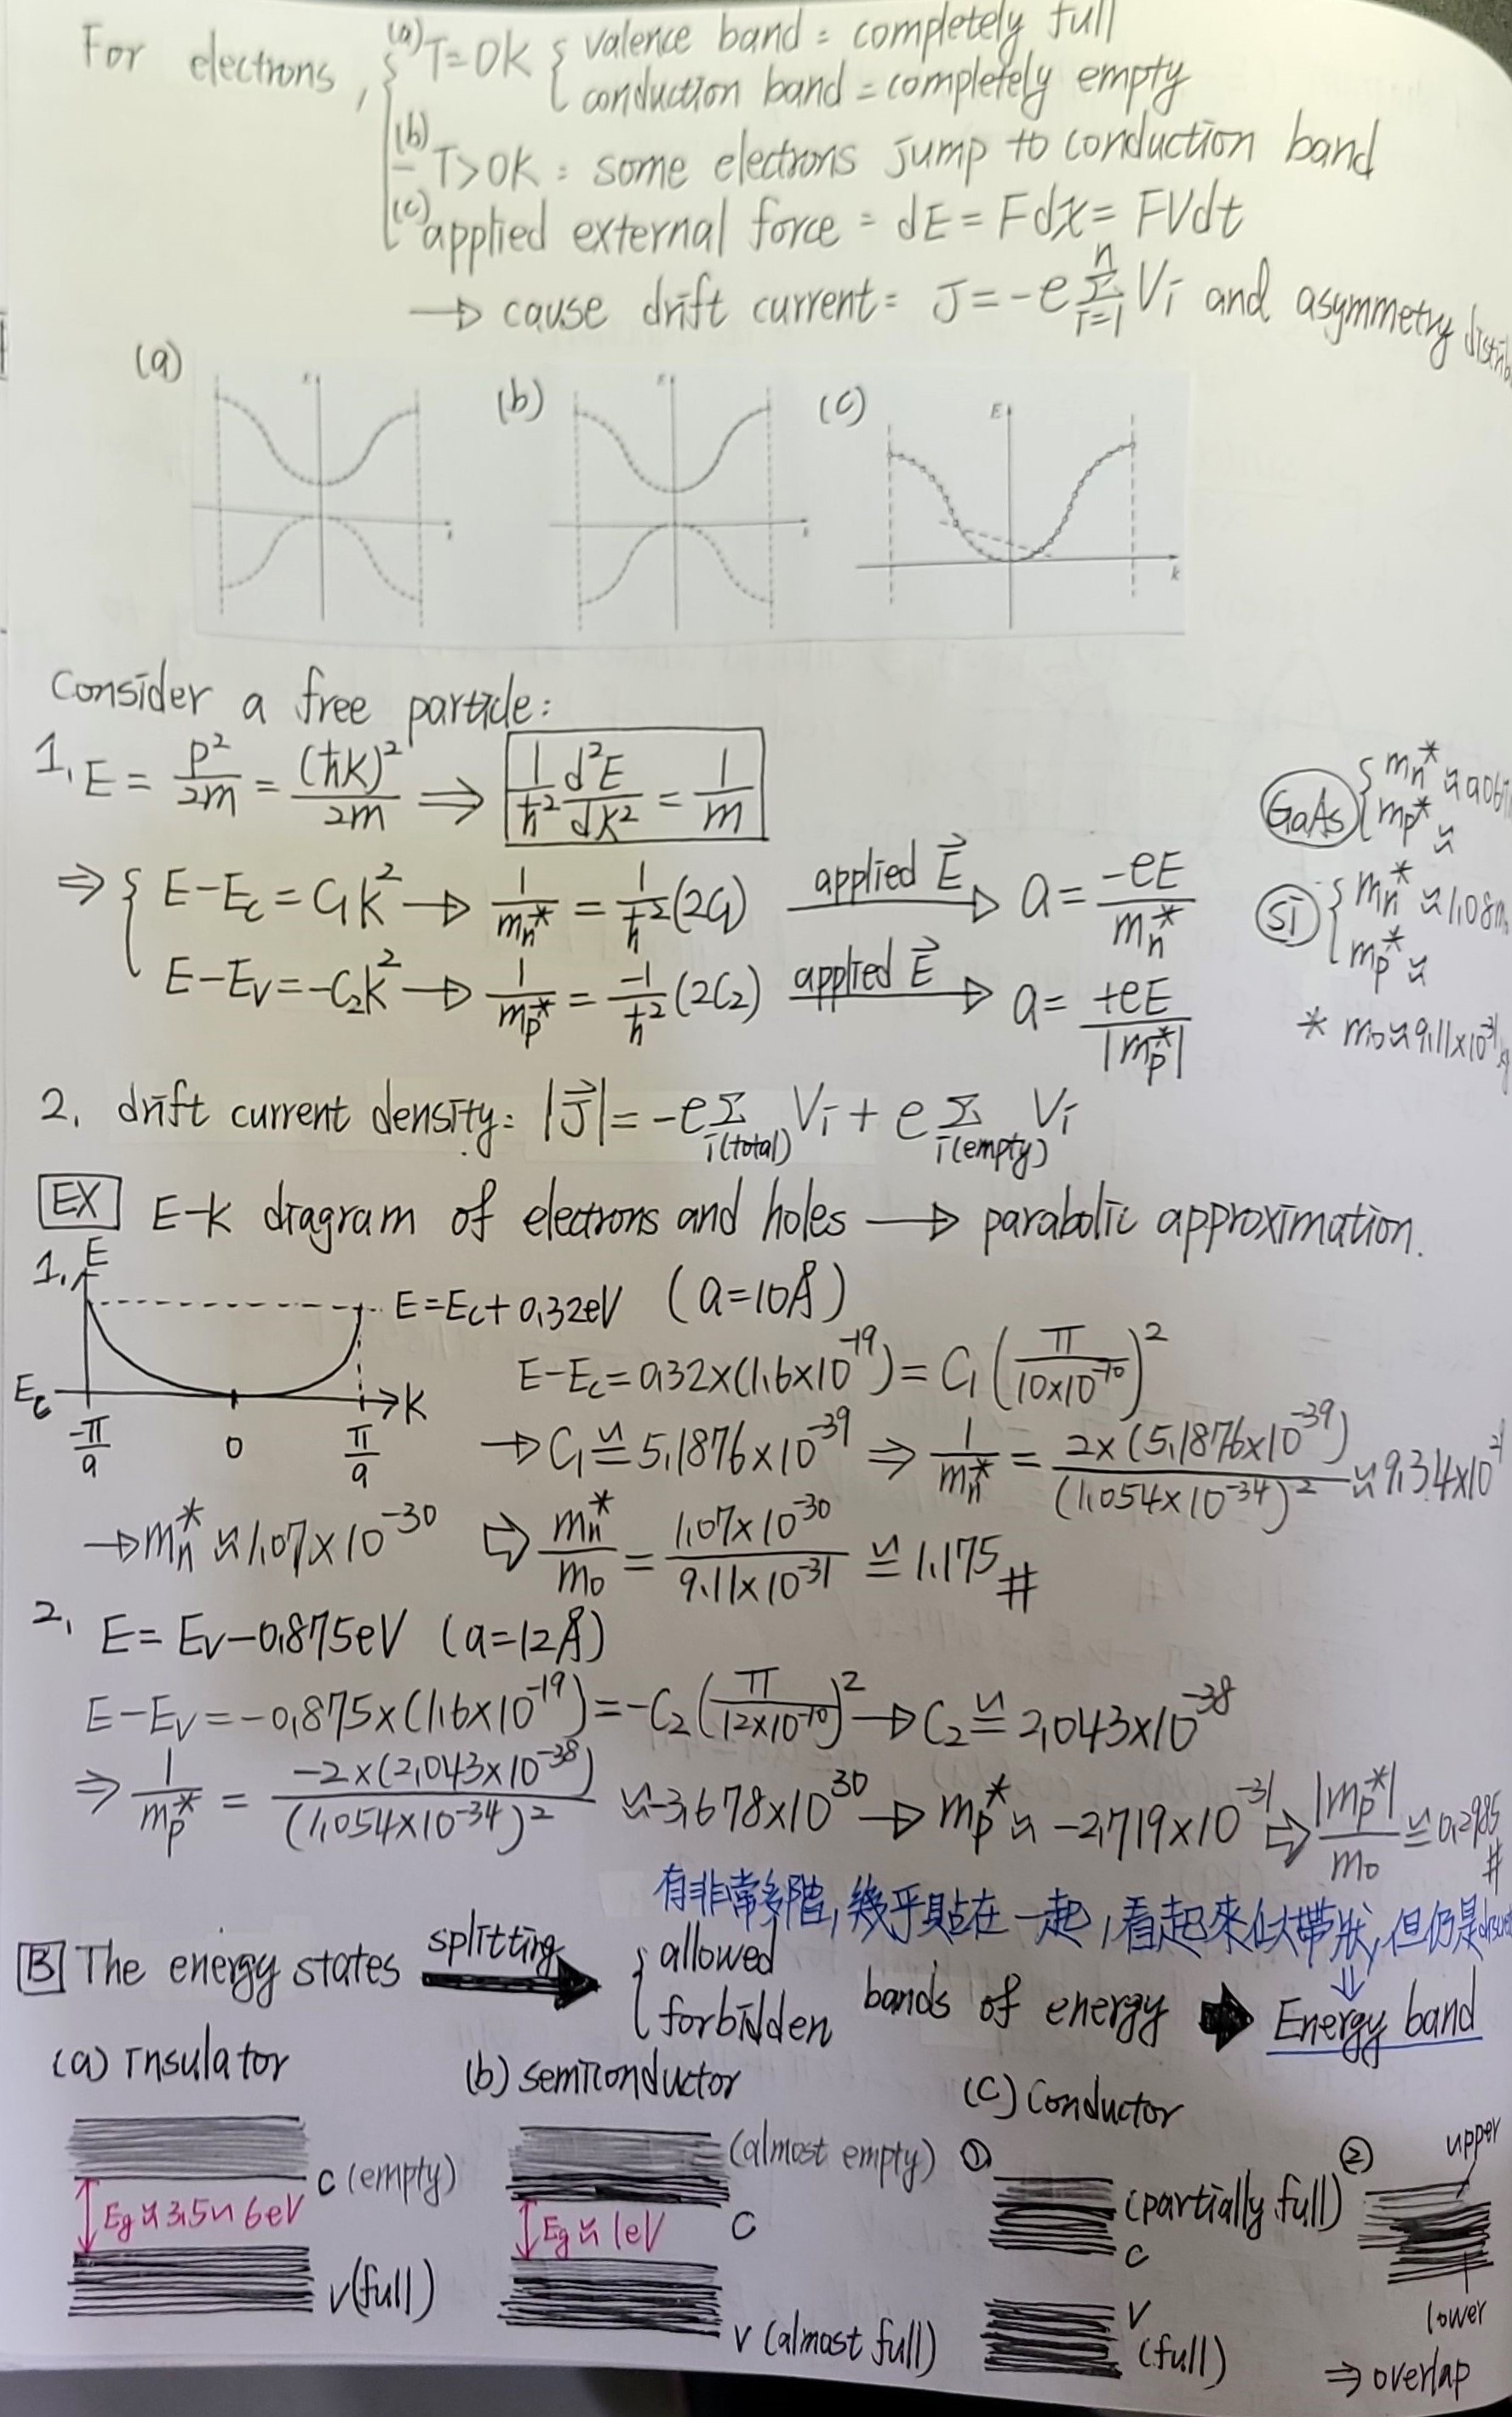 For electrons, { (a) T=0K { valence band = completely full
conduction band = completely empty
(b) T>0K = some electrons jump to conduction band
(c) applied external force = dE = Fdx = FVdt
→ cause drift current = J = -e Σ_{i=1}^{n} Vi and asymmetry
(a) (b) (c)
E k
Consider a free particle:
1. E = p²/2m = (ħk)²/2m ⇒ 1/ħ² d²E/dk² = 1/m
GaAs { mn* ≈
mp* ≈
⇒ { E-Ec = C1k² → 1/mn* = 1/ħ² (2C1) applied E⃗ → a = -eE/mn*
Si { mn* ≈ 1.08
mp* ≈
E-Ev = -C2k² → 1/mp* = -1/ħ² (2C2) applied E⃗ → a = +eE/|mp*|
* m0 ≈ 9.11×10⁻³¹
2. drift current density: |J⃗| = -e Σ_{i(total)} Vi + e Σ_{i(empty)} Vi
EX E-k diagram of electrons and holes → parabolic approximation.
1. E
E = Ec + 0.32eV (a=10Å)
E-Ec = 0.32×(1.6×10⁻¹⁹) = C1 (π/10×10⁻¹⁰)²
Ec -π/a 0 π/a k
→ C1 ≌ 5.1876×10⁻³⁹ ⇒ 1/mn* = 2×(5.1876×10⁻³⁹)/(1.054×10⁻³⁴)² ≈ 9.34×10
→ mn* ≈ 1.07×10⁻³⁰ ⇨ mn*/m0 = 1.07×10⁻³⁰/9.11×10⁻³¹ ≌ 1.175 #
2. E = Ev-0.875eV (a=12Å)
E-Ev = -0.875×(1.6×10⁻¹⁹) = -C2 (π/12×10⁻¹⁰)² → C2 ≌ 2.043×10⁻³⁸
⇒ 1/mp* = -2×(2.043×10⁻³⁸)/(1.054×10⁻³⁴)² ≈ -3.678×10³⁰ → mp* ≈ -2.719×10⁻³¹ ⇨ |mp*|/m0 ≌ 0.2985 #
有非常多階,幾乎貼在一起,看起來似帶狀,但仍是
B The energy states splitting → { allowed
forbidden bands of energy → Energy band
(a) Insulator (b) semiconductor (C) Conductor
C (empty)
Eg ≈ 3.5~6eV
V (full)
(almost empty)
C
Eg ≈ 1eV
V (almost full)
①
(partially full)
C
V
(full)
②
upper
lower
⇒ overlap